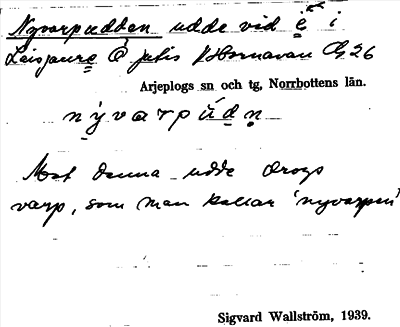 Nyvarpudden udde vid ě i
Laisjaure
Arjeplogs sn och tg, Norrbottens län.
nývarpúdn̥
Mot denna udde drogs
varp, som man kallar 'nyvarpen'
Sigvard Wallström, 1939.